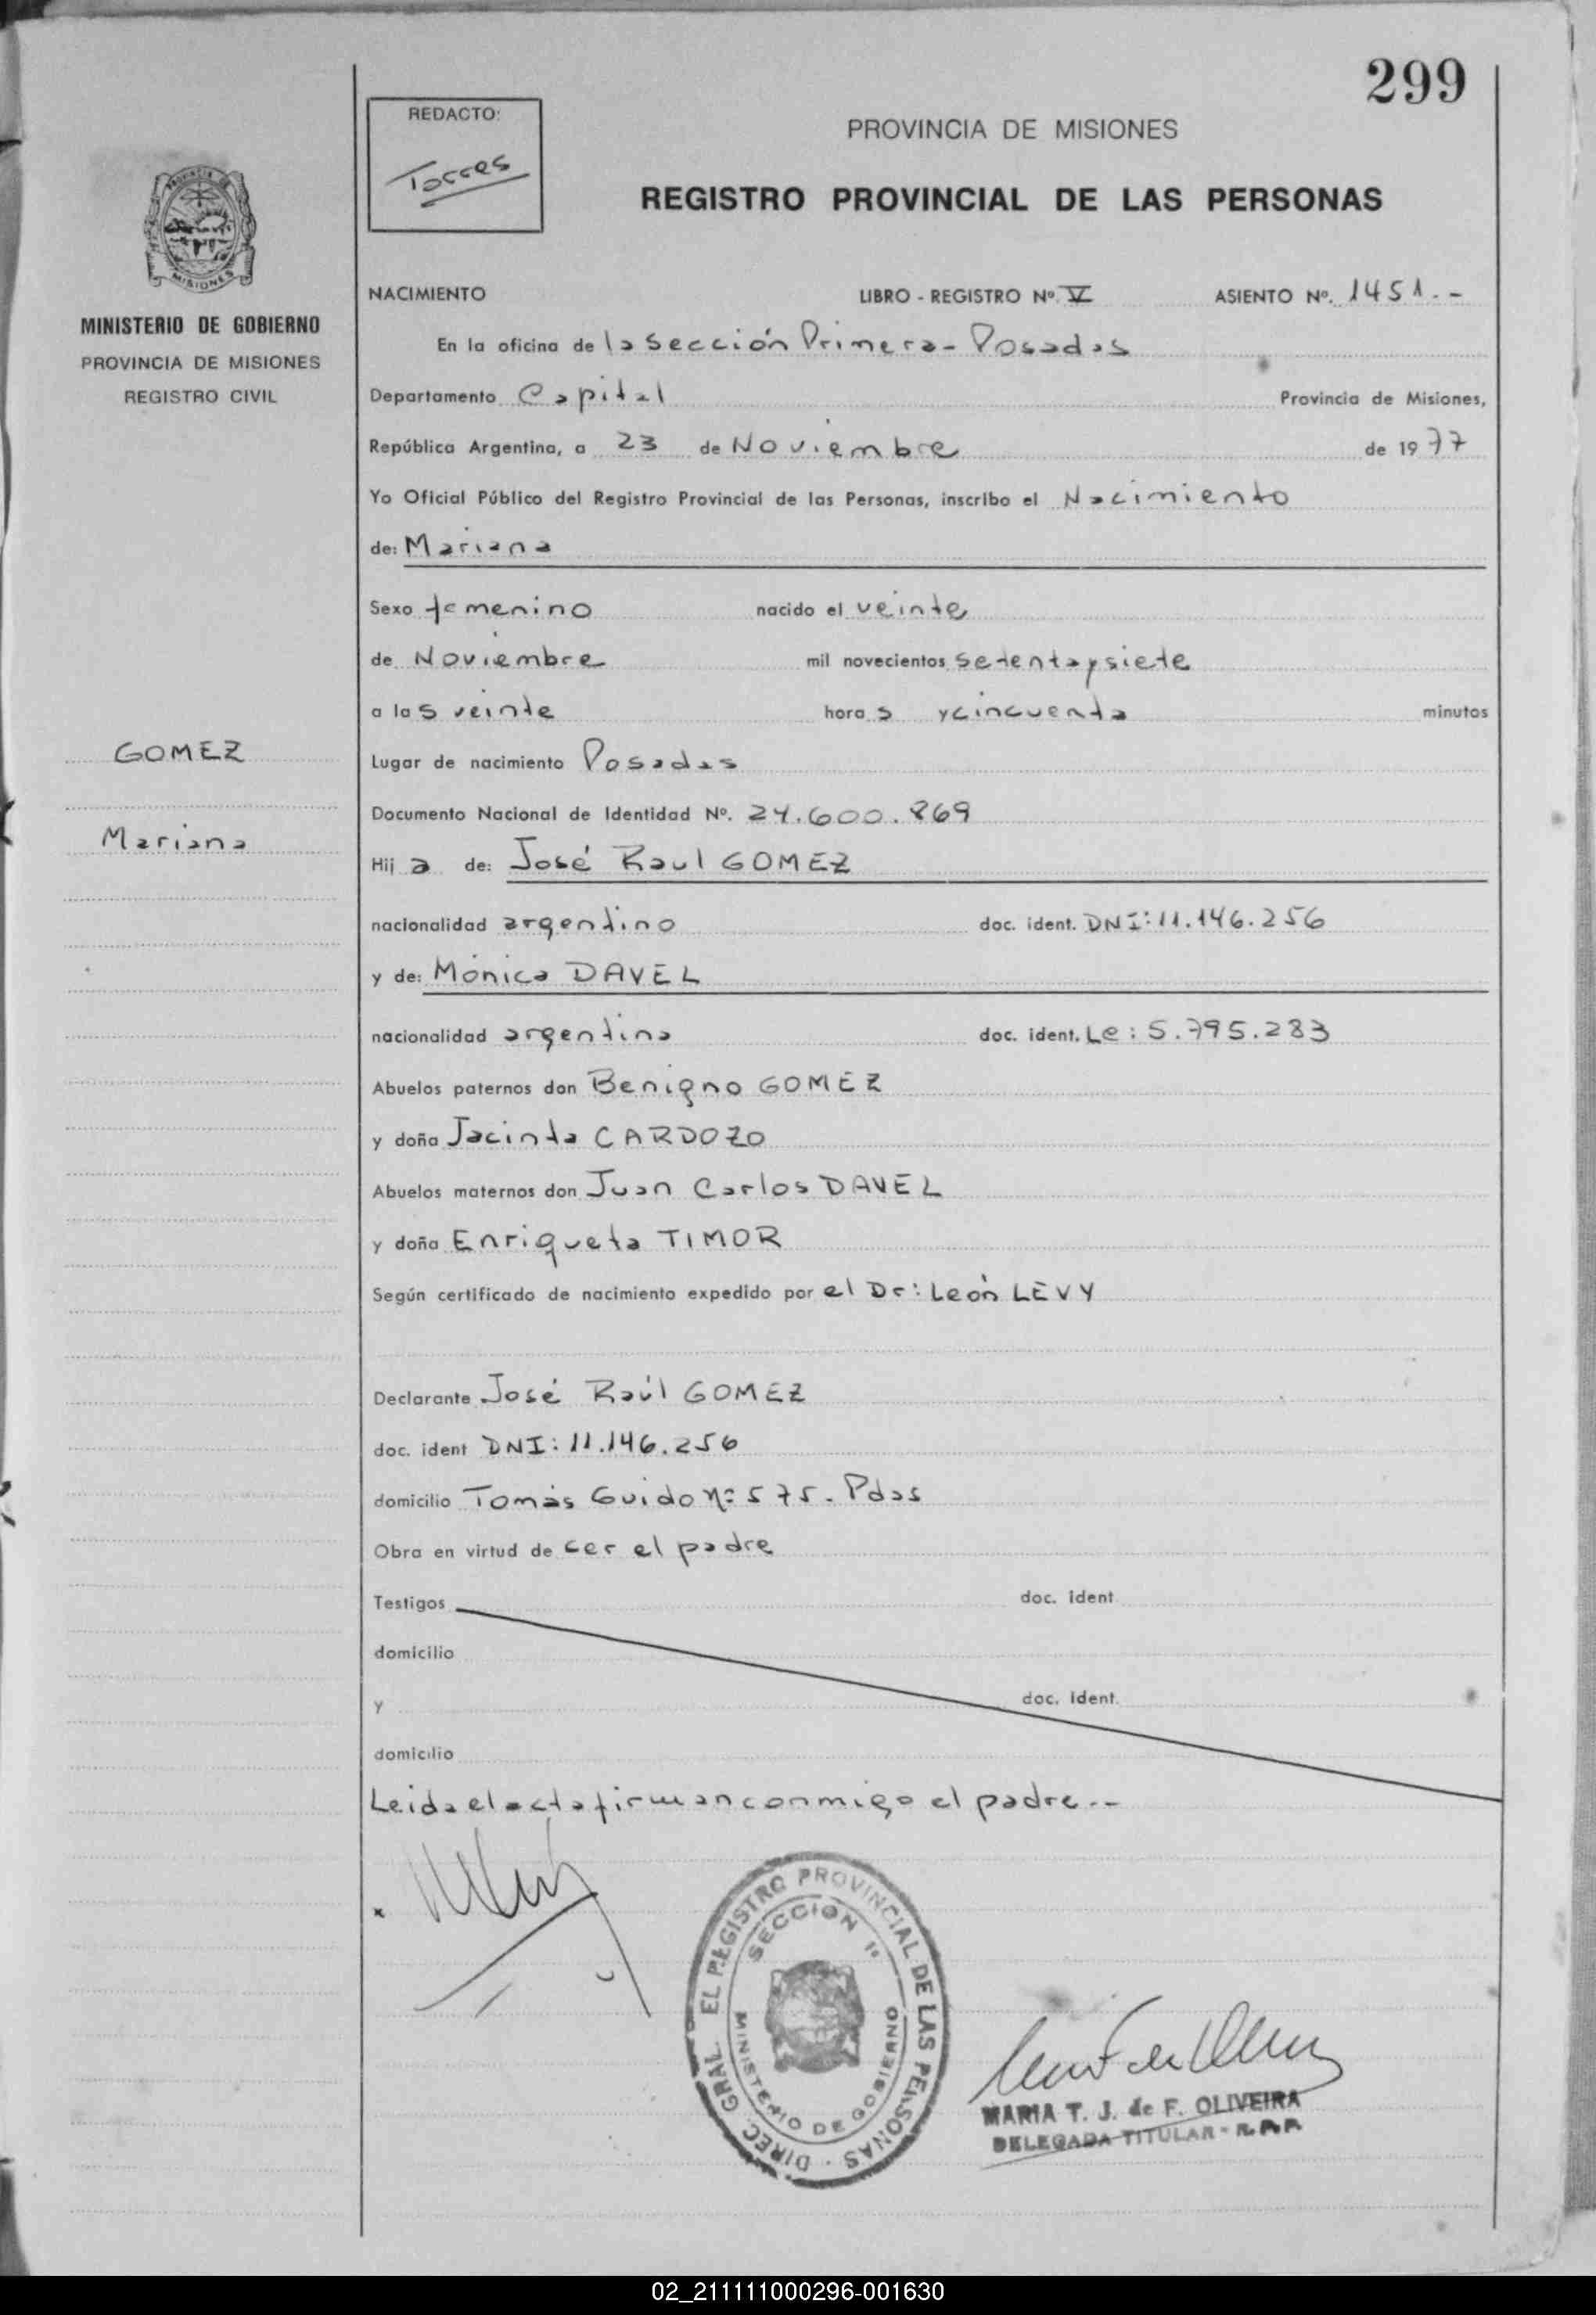 299
REDACTO:
Torres
PROVINCIA DE MISIONES
REGISTRO PROVINCIAL DE LAS PERSONAS
MISIONES
MINISTERIO DE GOBIERNO
PROVINCIA DE MISIONES
REGISTRO CIVIL
NACIMIENTO LIBRO - REGISTRO Nº. V ASIENTO Nº. 1451.-
En la oficina de la Sección Primera - Posadas
Departamento Capital Provincia de Misiones,
República Argentina, a 23 de Noviembre de 1977
Yo Oficial Público del Registro Provincial de las Personas, inscribo el Nacimiento
de: Mariana
Sexo femenino nacido el veinte
de Noviembre mil novecientos setentaysiete
a las veinte horas ycincuenta minutos
GOMEZ
Mariana
Lugar de nacimiento Posadas
Documento Nacional de Identidad Nº. 24.600.869
Hija de: José Raul GOMEZ
nacionalidad argentino doc. ident. DNI: 11.146.256
y de: Mónica DAVEL
nacionalidad argentina doc. ident. Le: 5.795.283
Abuelos paternos don Benigno GOMEZ
y doña Jacinta CARDOZO
Abuelos maternos don Juan Carlos DAVEL
y doña Enriqueta TIMOR
Según certificado de nacimiento expedido por el Dr: León LEVY
Declarante José Raúl GOMEZ
doc. ident DNI: 11.146.256
domicilio Tomás Guido Nº 575. Pdas
Obra en virtud de cer el padre
Testigos doc. ident
domicilio
y doc. ident.
domicilio
Leida el acta firman conmigo el padre.--
DIREC. GRAL. EL REGISTRO PROVINCIAL DE LAS PERSONAS
SECCION 1ª
MINISTERIO DE GOBIERNO
MARIA T. J. de F. OLIVEIRA
DELEGADA TITULAR - R.P.P.
02_211111000296-001630